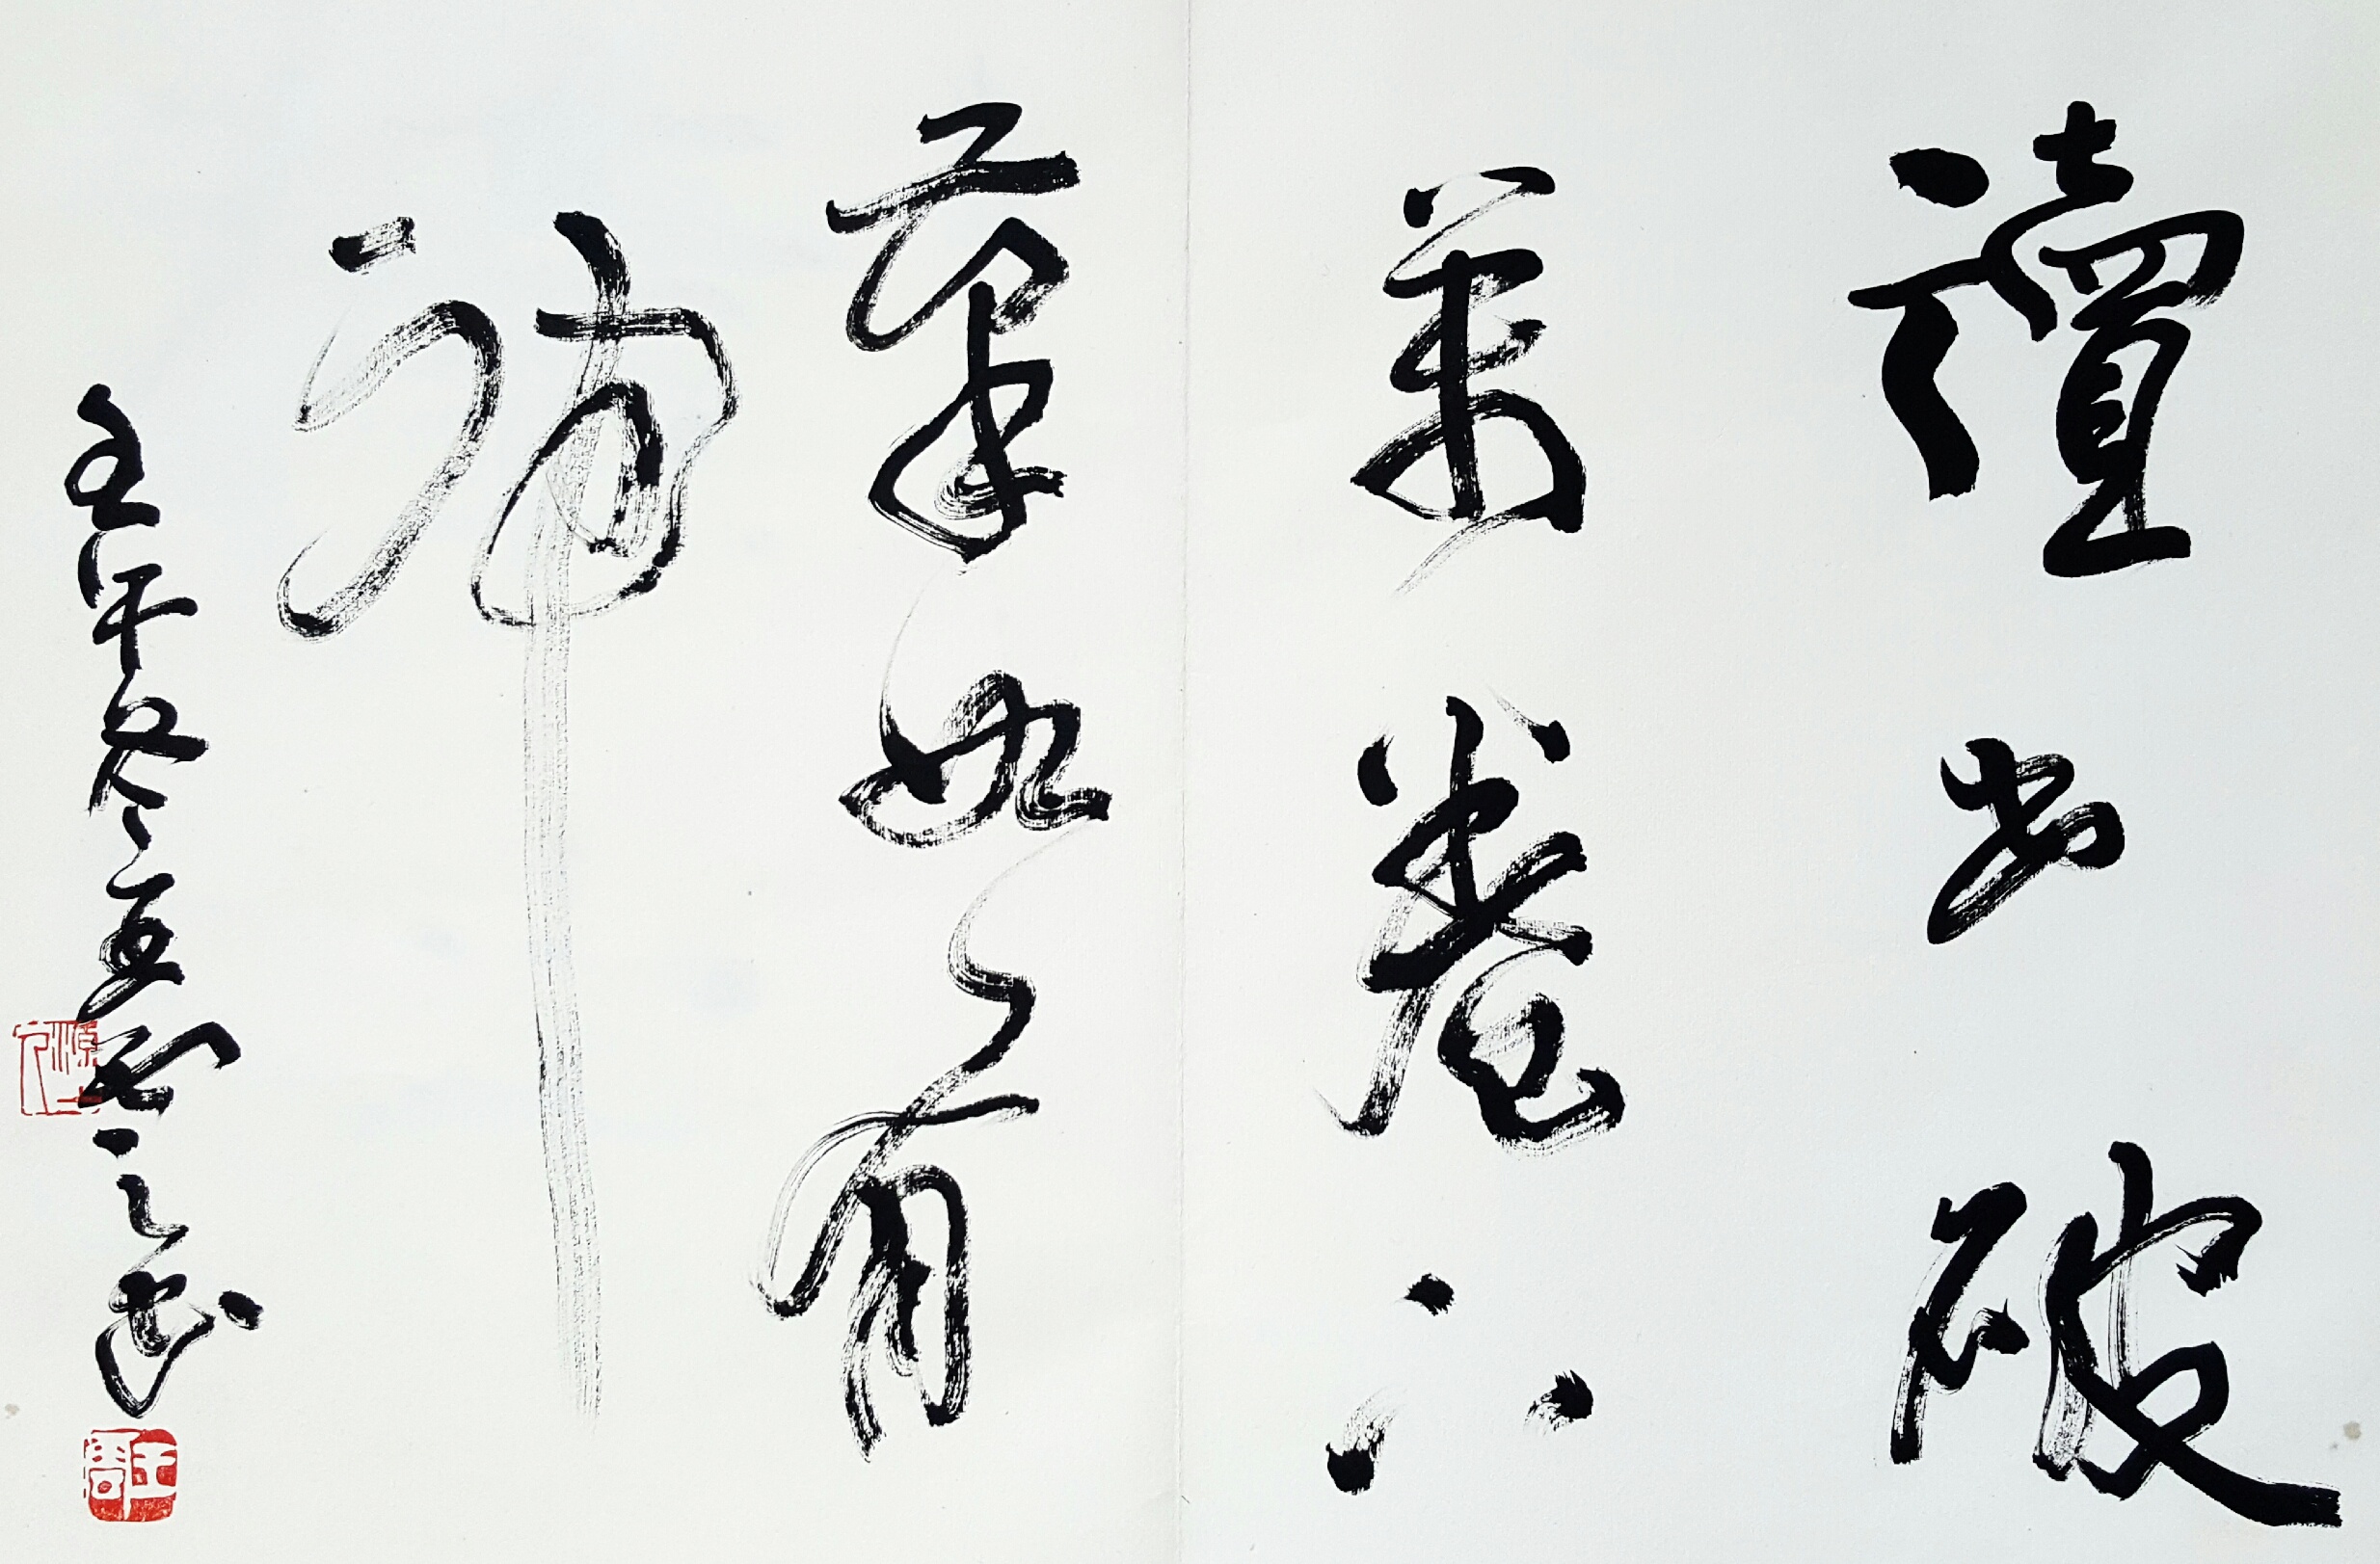 讀書破
萬卷下
筆如有
神
壬午冬